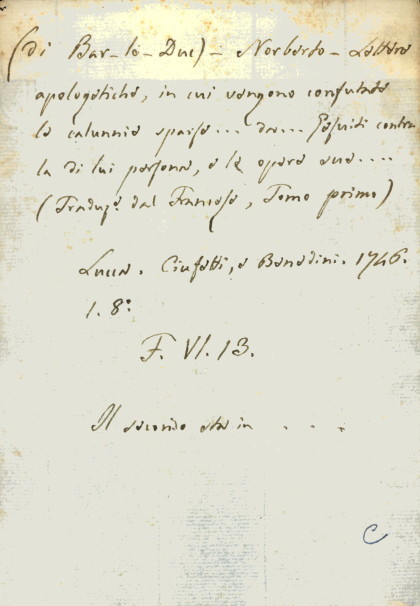 (di Bar-le-Duc) - Norberto - Lettere
apologetiche, in cui vengono confutate
le calunnie sparse... da... Gesuiti contro
la di lui persona, e le opere sue....
(Traduze. dal Francese, Tomo primo)
Lucca. Ciufetti, e Benedini. 1746.
1. 8°
F. VI. 13.
Il secondo sta in . . .
C